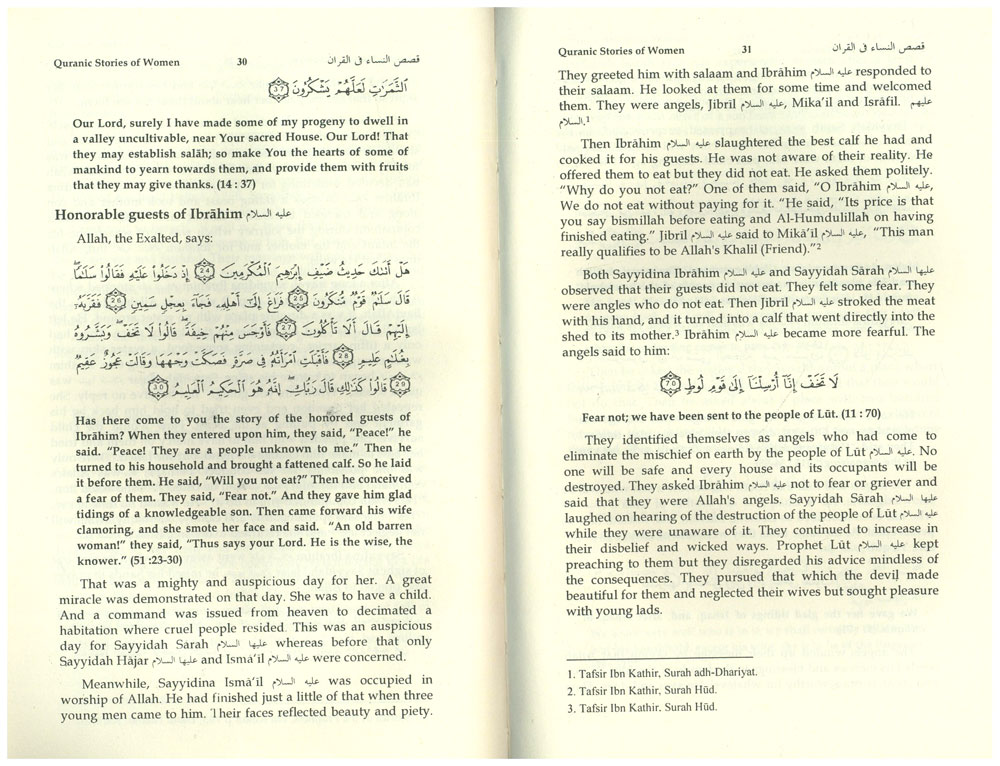 Quranic Stories of Women 30 قصص النساء فى القران
الثَّمَرَٰتِ لَعَلَّهُمْ يَشْكُرُونَ 37
Our Lord, surely I have made some of my progeny to dwell in
a valley uncultivable, near Your sacred House. Our Lord! That
they may establish salāh; so make You the hearts of some of
mankind to yearn towards them, and provide them with fruits
that they may give thanks. (14 : 37)
Honorable guests of Ibrāhim عليه السلام
Allah, the Exalted, says:
هَلْ أَتَىٰكَ حَدِيثُ ضَيْفِ إِبْرَٰهِيمَ ٱلْمُكْرَمِينَ 24 إِذْ دَخَلُوا۟ عَلَيْهِ فَقَالُوا۟ سَلَٰمًا ۖ
قَالَ سَلَٰمٌ قَوْمٌ مُّنكَرُونَ 25 فَرَاغَ إِلَىٰٓ أَهْلِهِۦ فَجَآءَ بِعِجْلٍ سَمِينٍ 26 فَقَرَّبَهُۥٓ
إِلَيْهِمْ قَالَ أَلَا تَأْكُلُونَ 27 فَأَوْجَسَ مِنْهُمْ خِيفَةً ۖ قَالُوا۟ لَا تَخَفْ ۖ وَبَشَّرُوهُ
بِغُلَٰمٍ عَلِيمٍ 28 فَأَقْبَلَتِ ٱمْرَأَتُهُۥ فِى صَرَّةٍ فَصَكَّتْ وَجْهَهَا وَقَالَتْ عَجُوزٌ عَقِيمٌ
29 قَالُوا۟ كَذَٰلِكِ قَالَ رَبُّكِ ۖ إِنَّهُۥ هُوَ ٱلْحَكِيمُ ٱلْعَلِيمُ 30
Has there come to you the story of the honored guests of
Ibrāhim? When they entered upon him, they said, “Peace!” he
said. “Peace! They are a people unknown to me.” Then he
turned to his household and brought a fattened calf. So he laid
it before them. He said, “Will you not eat?” Then he conceived
a fear of them. They said, “Fear not.” And they gave him glad
tidings of a knowledgeable son. Then came forward his wife
clamoring, and she smote her face and said. “An old barren
woman!” they said, “Thus says your Lord. He is the wise, the
knower.” (51 :23-30)
That was a mighty and auspicious day for her. A great
miracle was demonstrated on that day. She was to have a child.
And a command was issued from heaven to decimated a
habitation where cruel people resided. This was an auspicious
day for Sayyidah Sarah عليها السلام whereas before that only
Sayyidah Hājar عليها السلام and Ismā‘il عليه السلام were concerned.
Meanwhile, Sayyidina Ismā‘il عليه السلام was occupied in
worship of Allah. He had finished just a little of that when three
young men came to him. Their faces reflected beauty and piety.
Quranic Stories of Women 31 قصص النساء فى القران
They greeted him with salaam and Ibrāhim عليه السلام responded to
their salaam. He looked at them for some time and welcomed
them. They were angels, Jibril عليه السلام, Mika‘il and Isrāfil. عليهم
السلام.1
Then Ibrāhim عليه السلام slaughtered the best calf he had and
cooked it for his guests. He was not aware of their reality. He
offered them to eat but they did not eat. He asked them politely.
“Why do you not eat?” One of them said, “O Ibrāhim عليه السلام,
We do not eat without paying for it. “He said, “Its price is that
you say bismillah before eating and Al-Humdulillah on having
finished eating.” Jibril عليه السلام said to Mikā‘il عليه السلام, “This man
really qualifies to be Allah's Khalil (Friend).”2
Both Sayyidina Ibrāhim عليه السلام and Sayyidah Sārah عليها السلام
observed that their guests did not eat. They felt some fear. They
were angles who do not eat. Then Jibril عليه السلام stroked the meat
with his hand, and it turned into a calf that went directly into the
shed to its mother.3 Ibrāhim عليه السلام became more fearful. The
angels said to him:
لَا تَخَفْ إِنَّآ أُرْسِلْنَآ إِلَىٰ قَوْمِ لُوطٍ 70
Fear not; we have been sent to the people of Lūt. (11 : 70)
They identified themselves as angels who had come to
eliminate the mischief on earth by the people of Lūt عليه السلام. No
one will be safe and every house and its occupants will be
destroyed. They asked Ibrāhim عليه السلام not to fear or griever and
said that they were Allah's angels. Sayyidah Sārah عليها السلام
laughed on hearing of the destruction of the people of Lūt عليه السلام
while they were unaware of it. They continued to increase in
their disbelief and wicked ways. Prophet Lūt عليه السلام kept
preaching to them but they disregarded his advice mindless of
the consequences. They pursued that which the devil made
beautiful for them and neglected their wives but sought pleasure
with young lads.
1. Tafsir Ibn Kathir, Surah adh-Dhariyat.
2. Tafsir Ibn Kathir, Surah Hūd.
3. Tafsir Ibn Kathir. Surah Hūd.